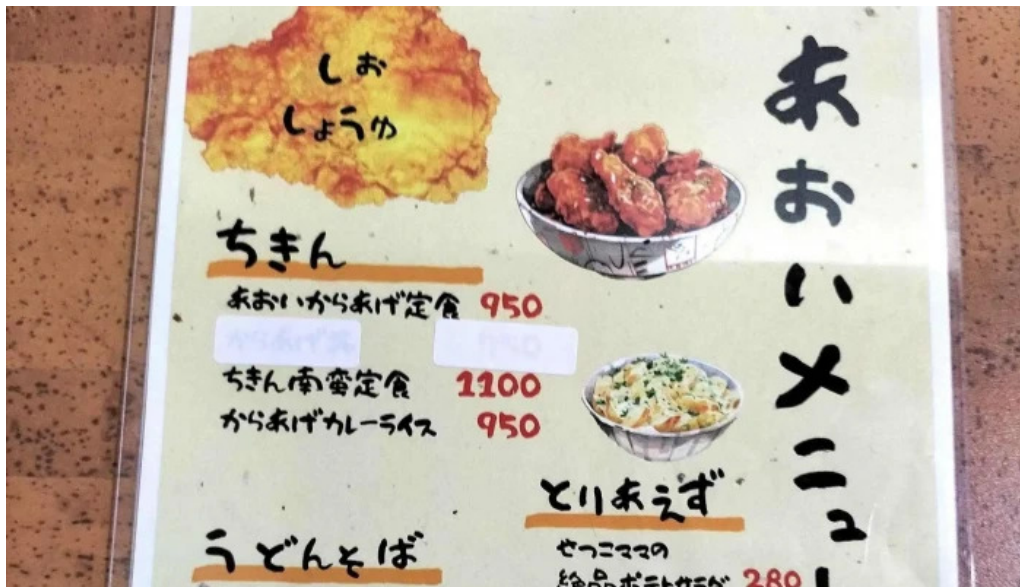 あおいメニュー
しお
しょうゆ
ちきん
あおいからあげ定食 950
ちきん南蛮定食 1100
からあげカレーライス 950
とりあえず
せつこママの
絶品ポテトサラダ 280
うどんそば